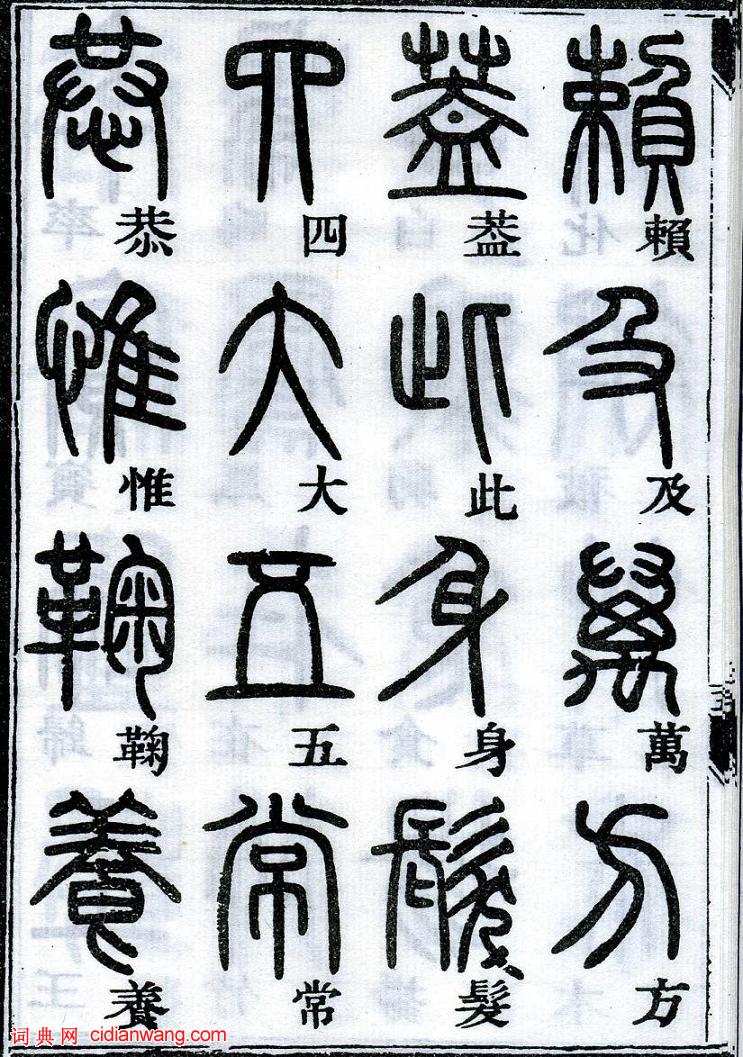 賴及萬方
葢此身髮
四大五常
恭惟鞠養
词典网 cidianwang.com